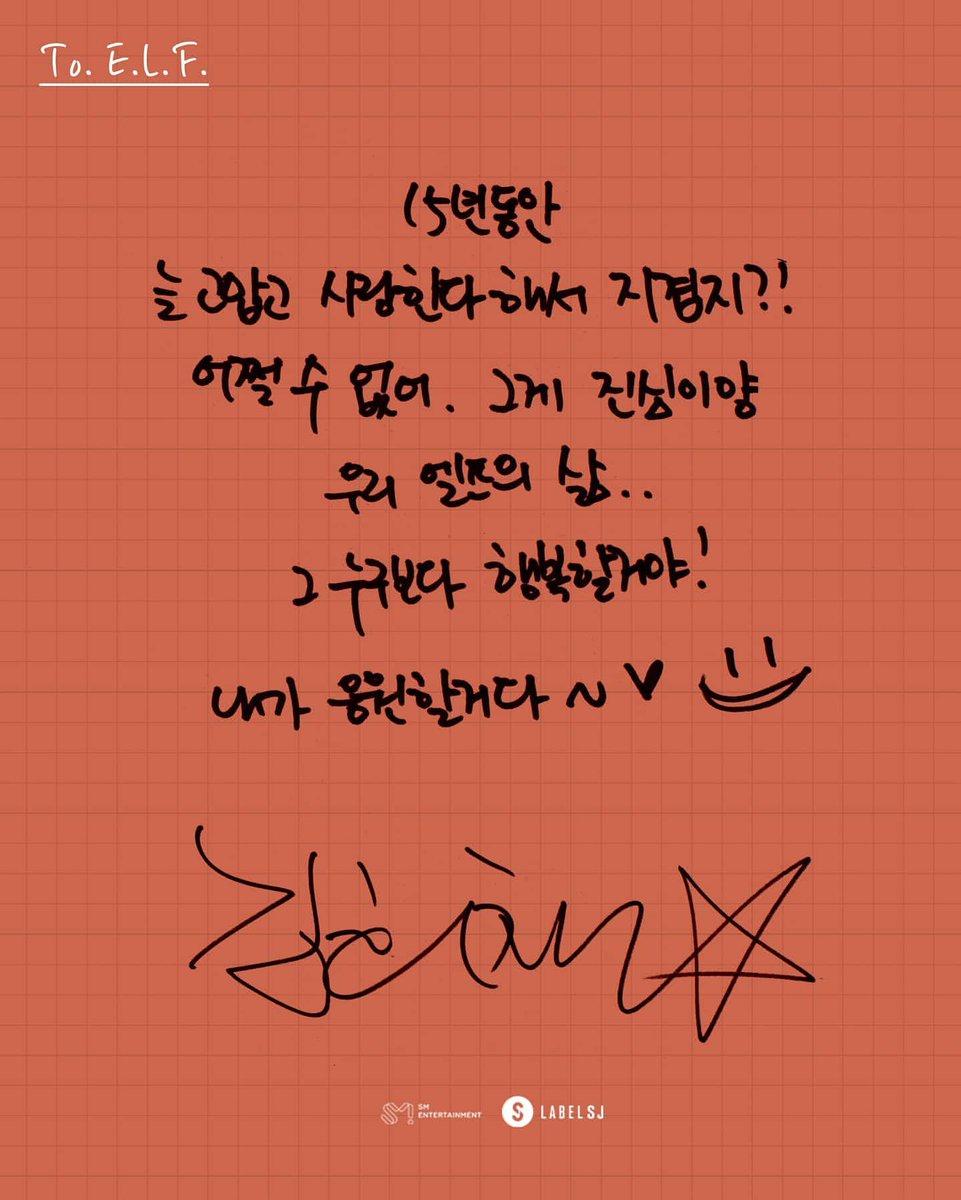 To. E.L.F.
15년동안
늘 고맙고 사랑한다해서 지겹지?!
어쩔 수 없어. 그게 진심이양
우리 엘프의 삶..
그 누구보다 행복할거야!
내가 응원할거다 ~ ♥
SM ENTERTAINMENT
LABELSJ